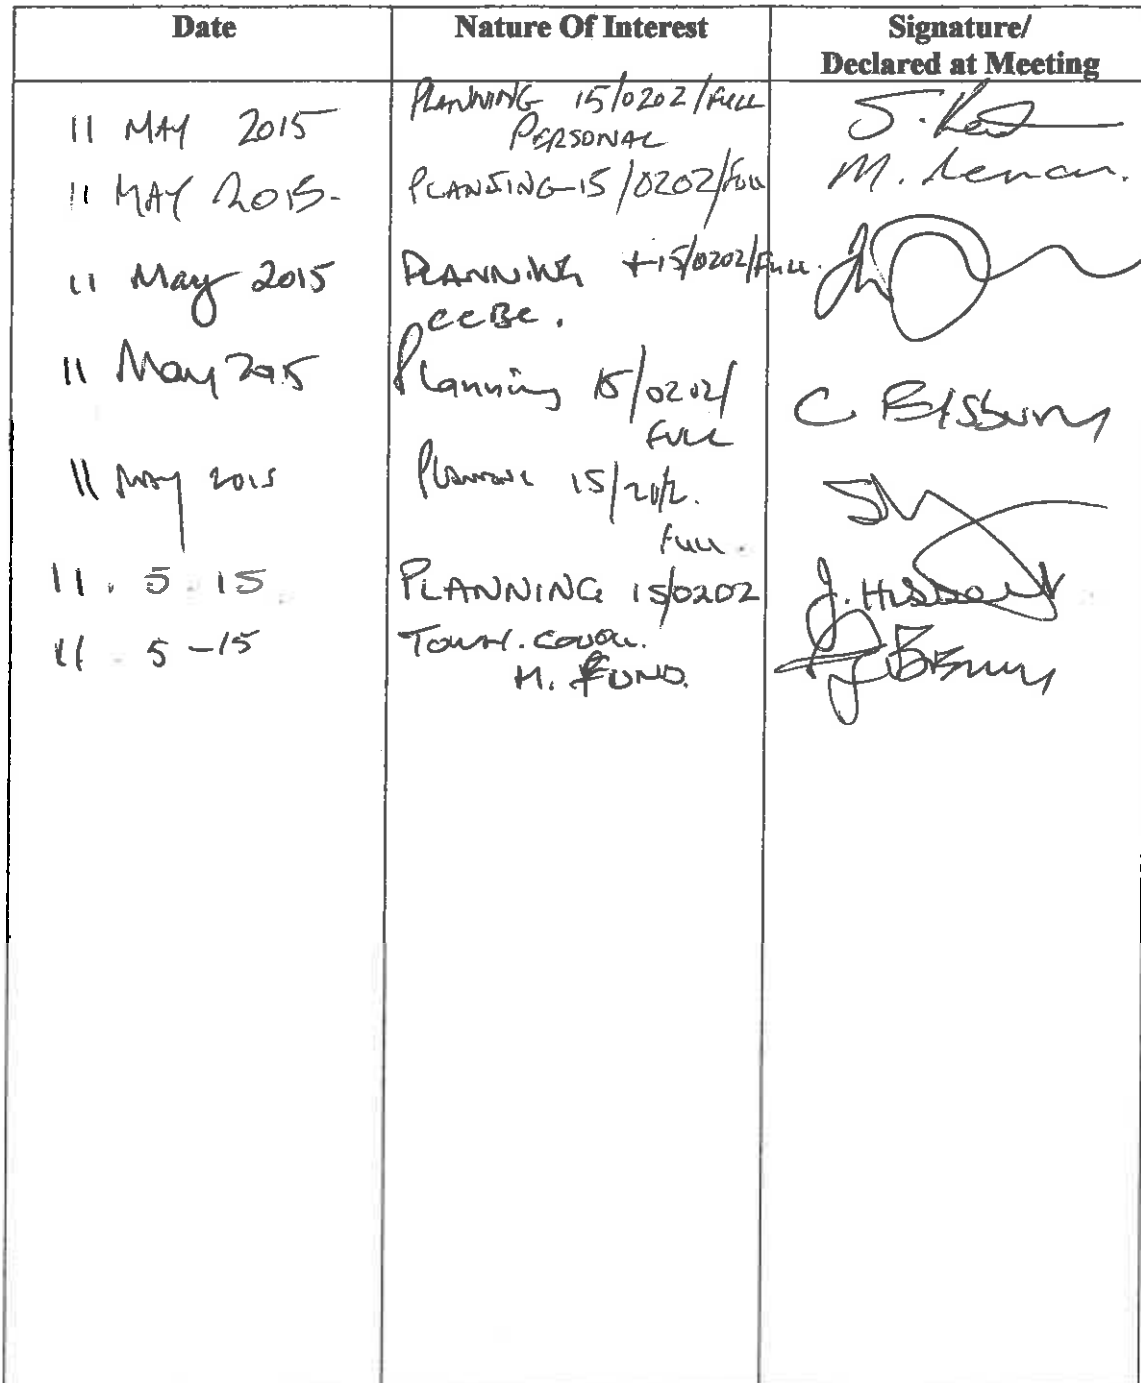 Date Nature Of Interest Signature/
Declared at Meeting
11 MAY 2015 PLANNING 15/0202/FULL
PERSONAL
11 MAY 2015. PLANNING 15/0202/FULL M.
11 May 2015 PLANNING +15/0202/FULL.
CCBC.
11 May 2015 Planning 15/0202/ C. Bisbury
FULL
11 MAY 2015 Planning 15/2012.
FULL.
11. 5. 15 PLANNING 15/0202 J.
11 5 -15 TOWN.
M. FUND.